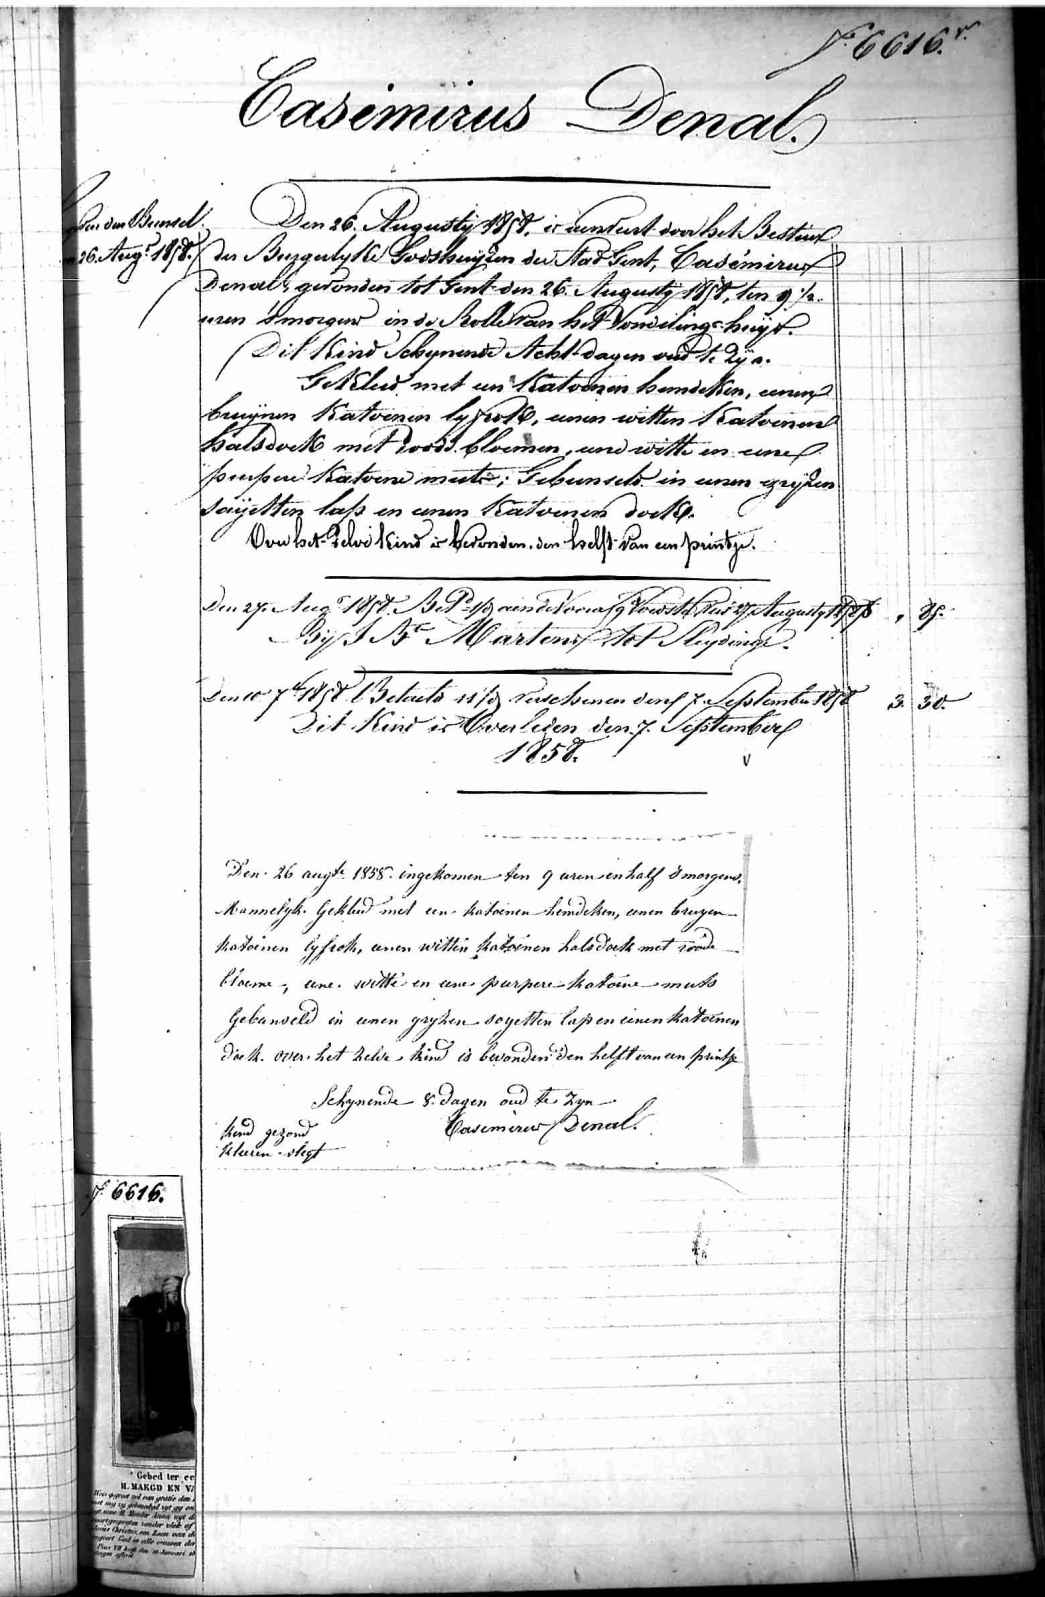 f. 6616. v.
Casimirus Denal.
Per den Bunsel.
26. Aug.s 1858.
Den 26. Augusty 1858. is aenveirt door het Bestier
der Burgerlyke Godshuyzen der Stad Gent, Casimirus
Denal, gevonden tot Gent den 26. Augusty 1858, ten 9 1/2.
uren s'morgens in de Rolle van het Vondelings-huys.
Dit Kind Schynende Acht dagen oud te zyn.
Gekleed met een Katoenen hemdeken, eenen
bruynen Katoenen lyfrok, eenen witten Katoenen
halsdoek met roode bloemen, eene witte en eene
purpere Katoene mutse; Gebunseld in eenen gryzen
sayetten lap en eenen Katoenen doek.
Over het zelve Kind is bevonden den helft van een printje.
Den 27. Aug.s 1858. 27 Augusty 1858 , 85.
By J. B.te Martens tot Sleydinge.
Den 10 7.b 1858 Betaeld verschenen den 7. September 1858 3. 30.
Dit Kind is Overleden den 7. September
1858.
Den 26 augte. 1858. ingekomen ten 9 uren en half s'morgens.
Mannelyk. Gekleed met een katoenen hemdeken, eenen bruynen
katoenen lyfrok, eenen witten katoenen halsdoek met roode
bloeme, eene witte en eene purpere katoene muts
Gebunseld in eenen gryzen sayetten lap en eenen katoenen
doek. over het zelve kind is bevonden den helft van een printje
Schynende 8. dagen oud te zyn
Casimirus Denal.
kind gezond
kleeren slegt
f. 6616.
Gebed ter ee
H. MAEGD EN